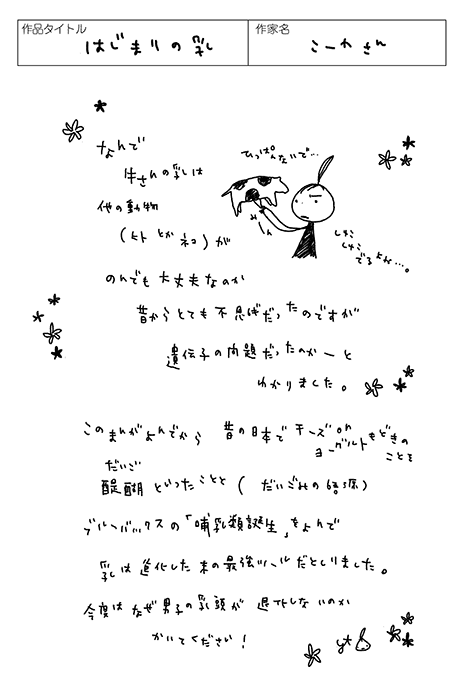 作品タイトル
はじまりの乳
作家名
こーわ さん
なんで
牛さんの乳は
他の動物
(ヒト とか ネコ) が
のんでも 大丈夫なのか
昔から とても 不思ぎだったのですが
遺伝子の問題だったのかーと
わかりました。
ひっぱんないで…
みーん
しゅこ
しゅこ
でるよね…。
このまんがよんでから 昔の日本で チーズ or
ヨーグルトもどきの
ことを
だいご
醍醐 といったことと ( だいごみの語源)
ブルーバックスの「哺乳類誕生」をよんで
乳は 進化した 末の最強ツールだとしりました。
今度は なぜ 男子の 乳頭が 退化しないのか
かいてください!